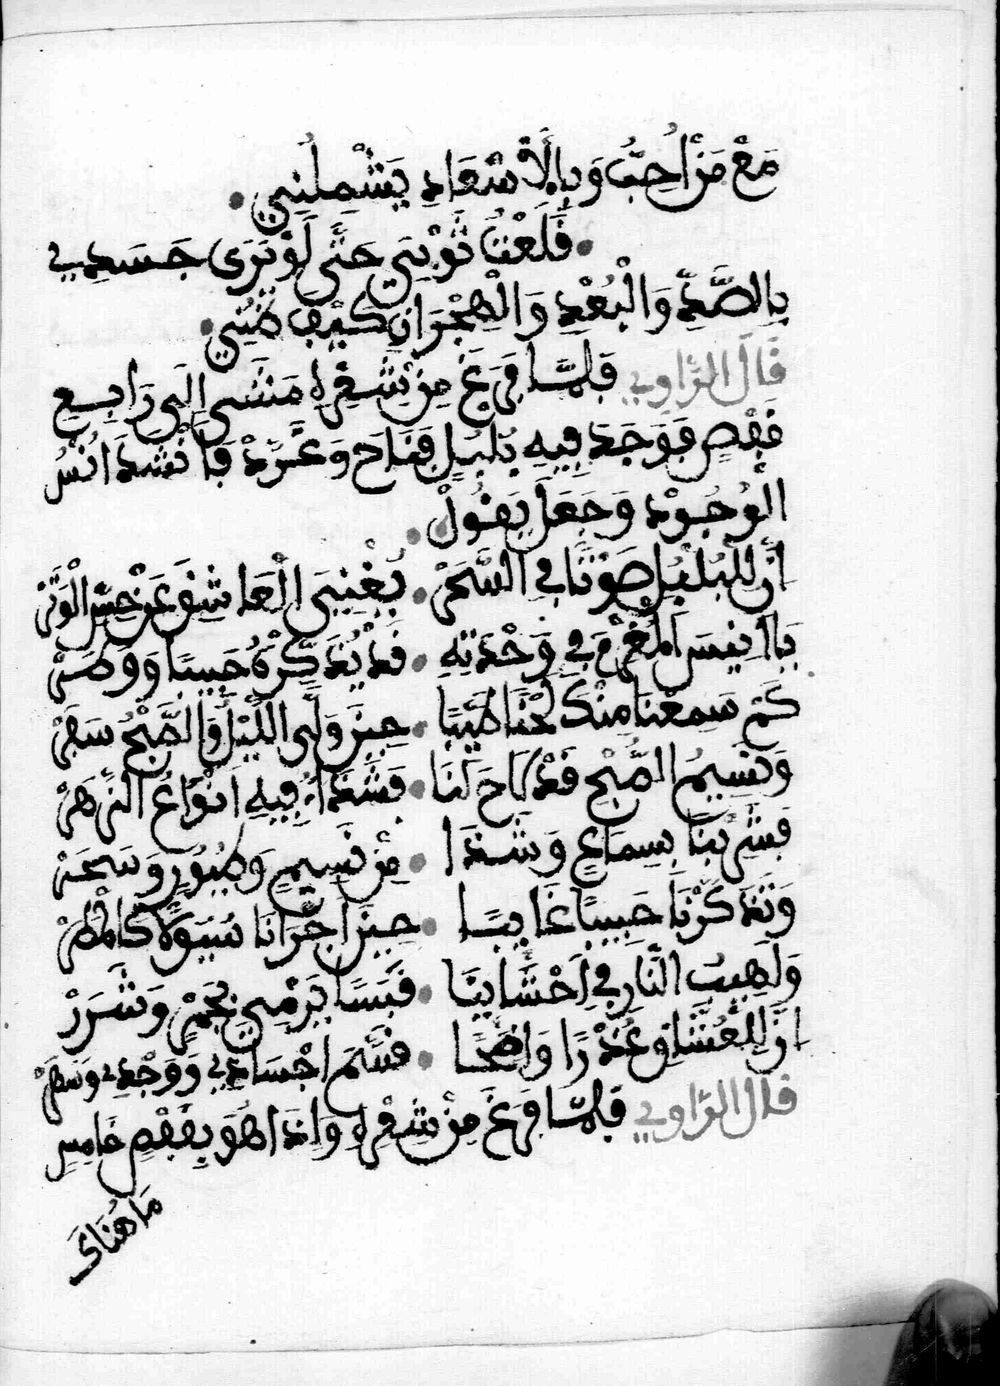 مَعْ مَنْ أُحِبُّ وَبِالْاسْعَادِ يَشْمِلُنِي
فَلَعْتُ ثَوْبِي حَتَّى لَوْ تَرَى جَسَدِي
بِالصَّدِّ وَالْبُعْدِ وَالْهِجْرَانِ كَيْفَ ضُنِي
قَالَ الرَّاوِي فَلَمَّا فَرَغَ مِنْ شِعْرِهِ مَشَى إِلَى رَابِعِ
قَفْصٍ فَوَجَدَ فِيهِ بُلْبُلٍ فَنَاحَ وَغَرَّدْ فَأَنْشَدَ انُسُ
الْوُجُودْ وَجَعَلَ يَقُولْ
انَّ لِلْبُلْبُلِ صَوْتًا فِي السَّحَرْ يُغْنِيَ الْعَاشِقَ عَنْ حُسْنِ الْوَتَرْ
يَا أَنِيسَ الْمُغْرَمِ فِي وَحْدَتِهِ قَدْ يُذَكِّرْهُ حَبِيبًا وَوَطَرْ
كَمْ سَمِعْنَا مِنْكَ لَحْنًا طَيِّبًا حِينَ وَلَّى اللَّيْلُ وَالصُّبْحُ سَفَرْ
وَنَسِيمُ الصُّبْحِ قَدْ لَاحَ لَنَا فَشَذَا فِيهِ انْوَاعُ الزَّهَرْ
فَشَرِبْنَا بِسِمَاعٍ وَشَذَا مِنْ نَسِيمٍ وَطُيُورٍ وَسَحَرْ
وَتَذَكَّرْنَا حَبِيبًا غَايِبًا حِينَ اجْرَانَا سُيُولًا كَالْمَطَرْ
وَلَهِيبُ النَّارِ فِي أَحْشَايِنَا قَبَسًا يَرْمِي بِجَمْرٍ وَشَرَرْ
انَّ لِلْعُشَّاقِ عُذْرًا وَاضِحًا سَقَمْ اجْسَادِي وَوَجْدِي وَسَهَرْ
قَالَ الرَّاوِي فَلَمَّا فَرَغَ مِنْ شِعْرِهِ وَاذَا هُوَ بِقَفْصٍ خَامِسٍ
مَا هُنَاكَ